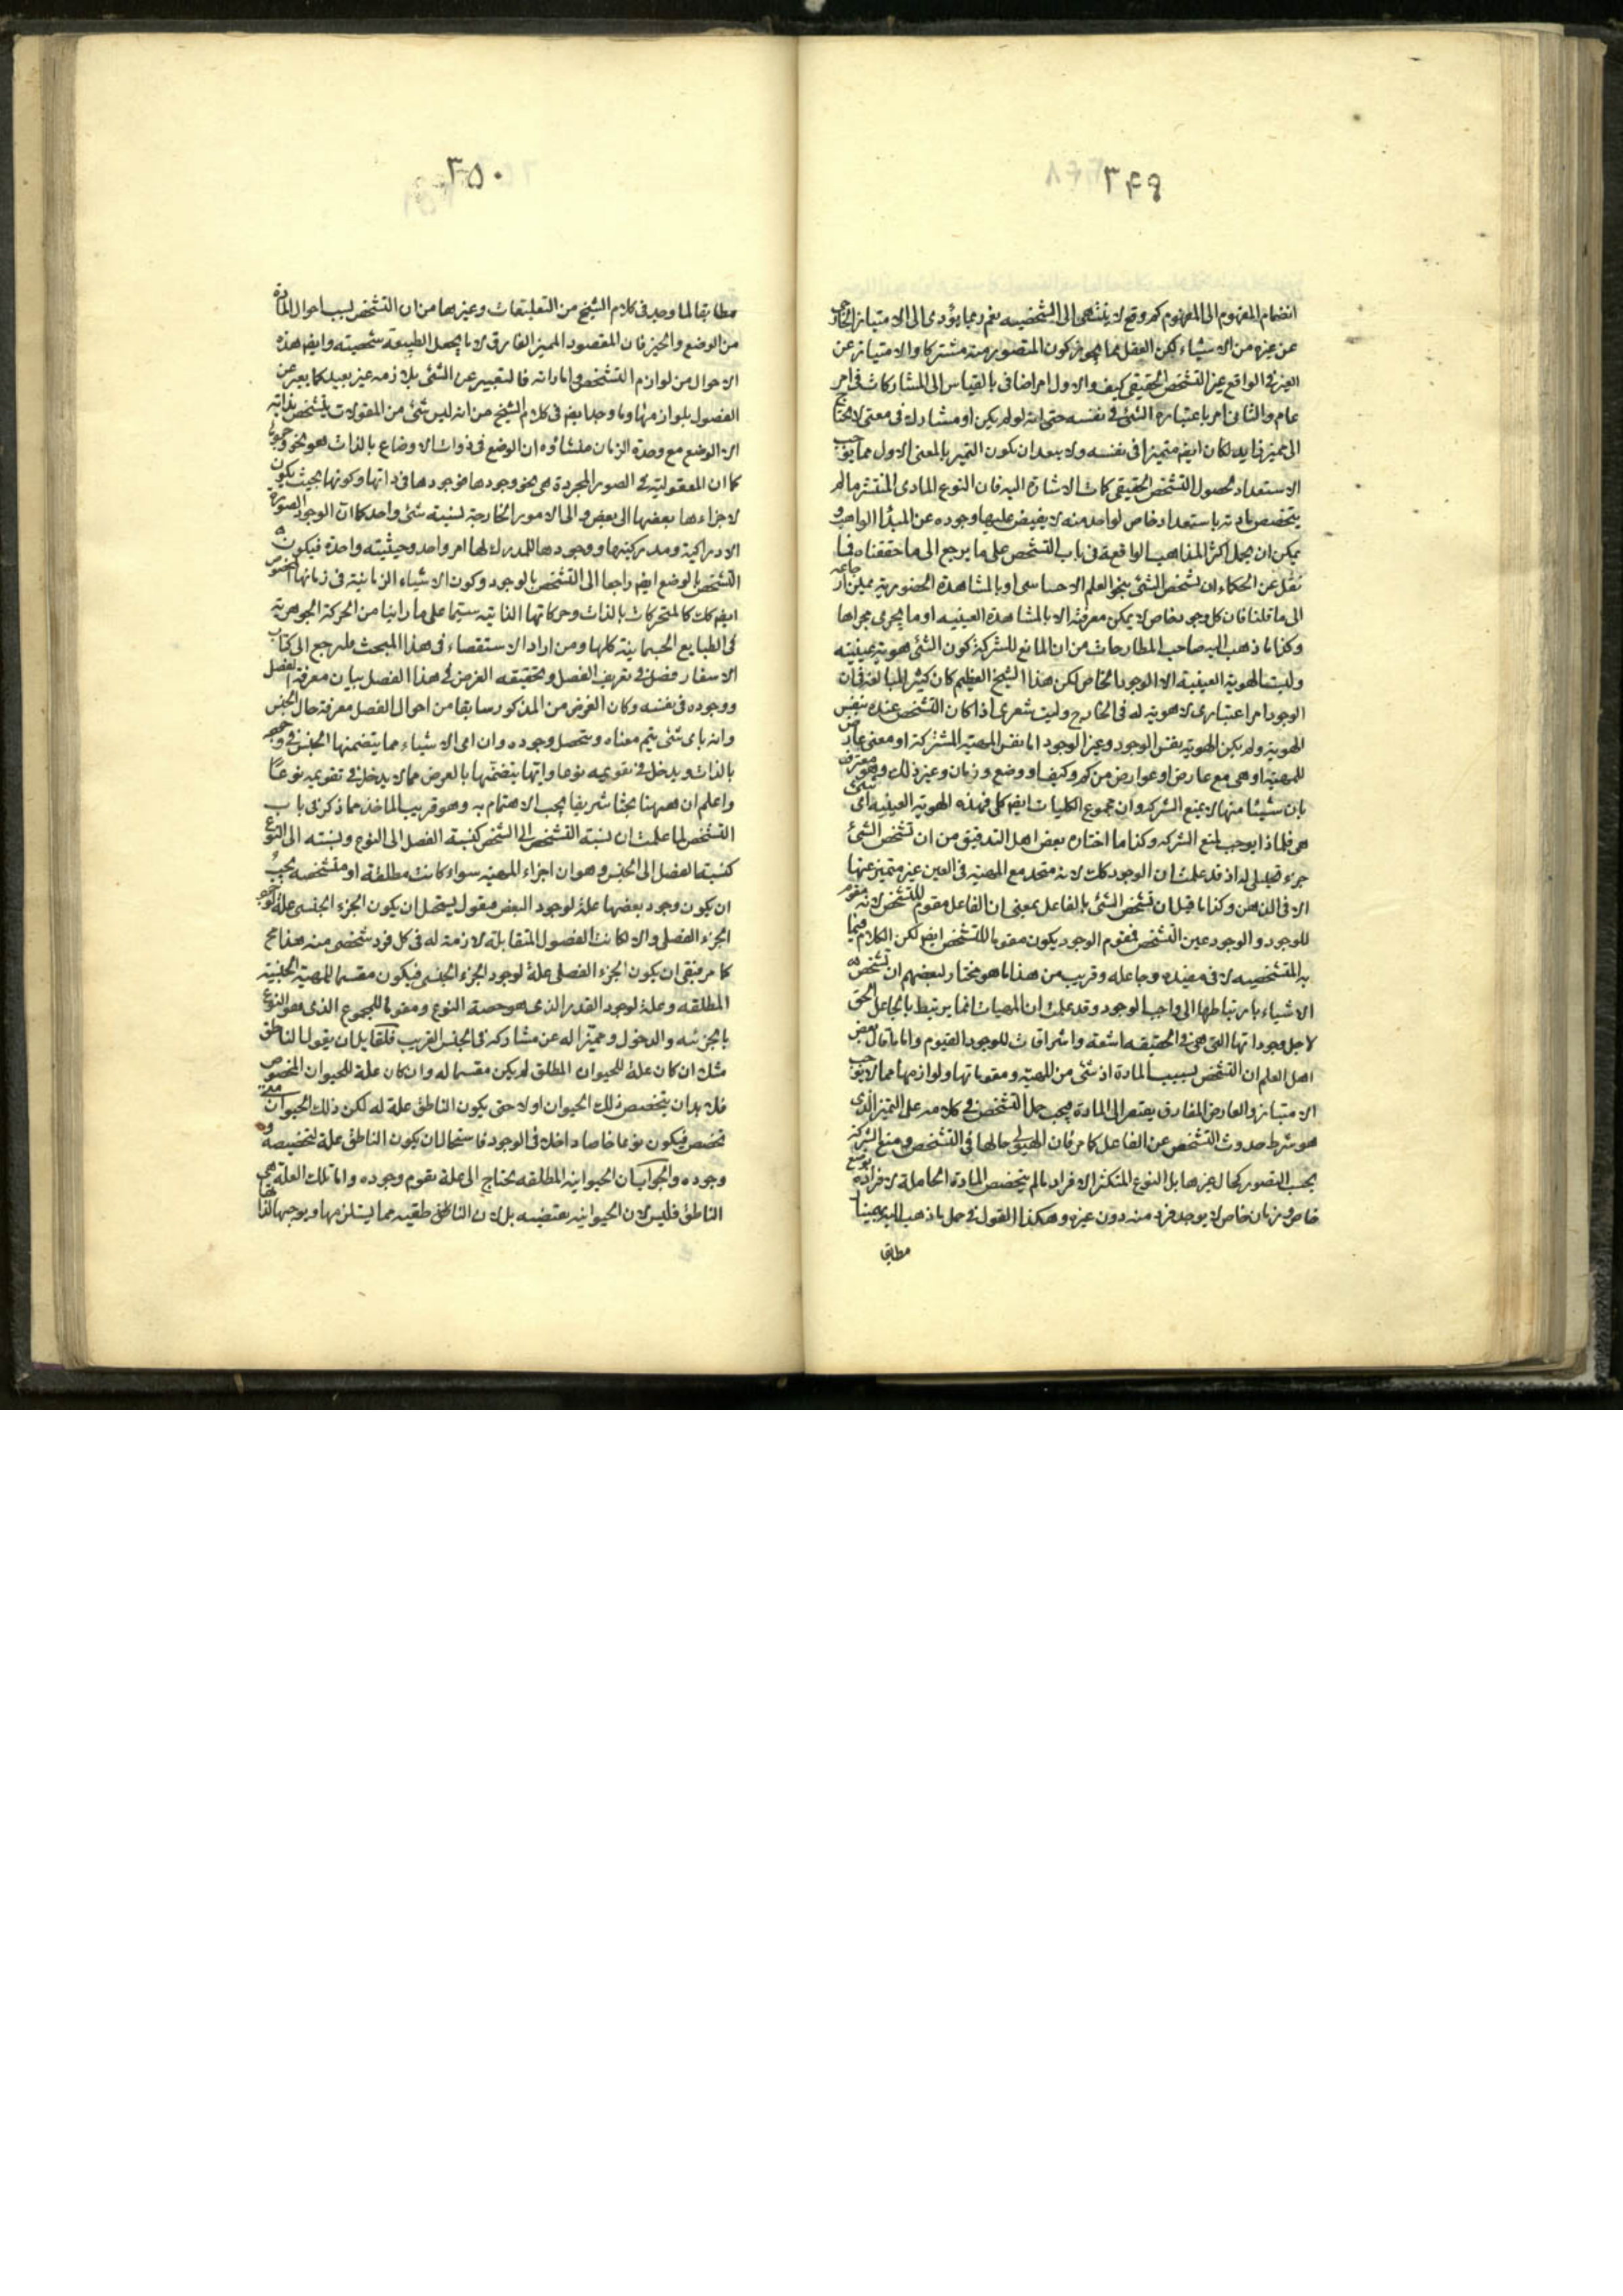 ٣٤٩
انضمام المفهوم الى المفهوم كم وقع لا ينتهى الى الشخصيه نعم ربما يؤدى الى الامتياز
عن غيره من الاشياء لكن العقل مما يجوز كون المتصور منه مشتركا والامتياز عن
الغير فى الواقع غير التشخص الحقيقى كيف والاول امر اضافى بالقياس الى المشاركات فى امر
عام والثانى امر باعتباره الشئ فى نفسه حتى انه لو لم يكن له مشارك فى معنى لا يحتاج
الى مميز زايد لكان ايضم متميزا فى نفسه ولا يبعد ان يكون التميز بالمعنى الاول مما يوجب
الاستعداد لحصول التشخص الحقيقى كما ت الاشارة اليه فان النوع المادى المنتشر ما لم
يتخصص مادته باستعداد خاص لواحد منه لا يفيض عليها وجوده عن المبدا الواهب و
يمكن ان يحمل اكثر المذاهب الواقعة فى باب التشخص على ما يرجع الى ما حققناه فما
نقل عن الحكماء ان تشخص الشئ بنحو العلم الاحساسى او بالمشاهدة الحضوريه يمكن ارجاعه
الى ما قلنا فان كل وجود خاص لا يمكن معرفته الا بالمشاهدة العينيه او ما يجرى مجراها
وكذا ما ذهب اليه صاحب المطارحات من ان المانع للشركة كون الشئ هوية عينيته
وليست الهوية العينية الا الوجود الخاص لكن هذا الشيخ العظيم كان كثير المبالغة فى ان
الوجود امر اعتبارى لا هوية له فى الخارج وليت شعرى اذا كان التشخص عنده بنفس
الهوية ولم يكن الهوية نفس الوجود وغير الوجود اما نفس المهية المشتركة او معنى عارض
للمهية او هى مع عارض او عوارض من كم وكيف او وضع و زمان وغير ذلك وهو معترف
بان شيئا منها لا يمنع الشركه وان مجموع الكليات ايضم كلى فهذه الهوية العينيه اى شئ
هى فلماذا يوجب لمنع الشركه وكذا ما اختاره بعض اهل التدقيق من ان تشخص الشئ
جزء تحليلى له اذ قد علمت ان الوجود كك لانه متحد مع المهية فى العين غير متميز عنها
الا فى الذهن وكذا ما قيل ان تشخص الشئ بالفاعل بمعنى ان الفاعل مقوم للتشخص لانه مقوم
للوجود و الوجود عين التشخص فمقوم الوجود يكون مقوما للتشخص ايضم لكن الكلام فيما
به المتشخصيه لا فى مفيده وجاعله وقريب من هذا ما هو مختار لبعضهم ان تشخص
الاشياء بارتباطها الى واجب الوجود وقد علمت ان المهيات انما يرتبط بالجاعل الحق
لاجل وجوداتها التى هى فى الحقيقه اشعته واشراقات للوجود القيوم واما ما قال بعض
اهل العلم ان التشخص بسبب المادة اذ شئ من المهيه و مقوماتها ولوازمها مما لا يوجب
الامتياز والعارض المفارق يفتقر الى المادة فيجب حمل التشخص فى كلامه على التميز الذى
هو شرط حدوث التشخص عن الفاعل كما مر فان الهيولى حالها فى التشخص ومنع الشركة
بحسب التصور كحال غيرها بل النوع المتكثر الافراد ما لم يتخصص المادة الحاملة لافراده بوضع
خاص وزمان خاص لا يوجد فرد منه دون غيره وهكذا القول فى حمل ما ذهب اليه بهمنيار
مطابقا
٣٥٠
مطابقا لما وجد فى كلام الشيخ من التعليقات وغيرها من ان التشخص بسبب احوال المادة
من الوضع والحيز فان المقصود المميز الفارق لا ما يجعل الطبيعة شخصيته وايضم هذه
الاحوال من لوازم التشخص واماراته فالتعبير عن الشئ بلازمه غير بعيد كما يعبر عن
الفصول بلوازمها وما وجد ايضم فى كلام الشيخ من انه ليس شئ من المقولات يتشخص بذاته
الا الوضع مع وحدة الزمان منشاؤه ان الوضع فى ذوات الاوضاع بالذات هو نحو وجودها
كما ان المعقولية فى الصور المجردة هى نحو وجودها فوجودها فى ذاتها وكونها بحيث يكون
لاجزاءها بعضها الى بعض والى الامور الخارجة نسبة شئ واحد كما ان الوجود الصورة
الادراكية ومدركيتها ووجودها للمدرك لها امر واحد وحيثيته واحدة فيكون
التشخص بالوضع ايضم راجعا الى التشخص بالوجود وكون الاشياء الزمانية فى زمانها المخصوص
ايضم كك كالمتحركات بالذات وحركاتها الذاتيه سيما على ما راينا من الحركة الجوهرية
فى الطبايع الجسمانية كلها ومن اراد الاستقصاء فى هذا المبحث فليرجع الى كتاب
الاسفار فصل فى تعريف الفصل وتحقيقه الغرض فى هذا الفصل بيان معرفة الفصل
ووجوده فى نفسه وكان الغرض من المذكور سابقا من احوال الفصل معرفة حال الجنس
وانه باى شئ يتم معناه ويتحصل وجوده وان اى الاشياء مما يتضمنها الجنس فى وجوده
بالذات ويدخل فى تقويمه نوعا وايتها يتضمنها بالعرض مما لا يدخل فى تقويمه نوعا
واعلم ان ههنا بحثا شريفا يجب الاهتمام به وهو قريب الماخذ مما ذكر فى باب
التشخص لما علمت ان نسبة التشخص الى الشخص كنسبة الفصل الى النوع ونسبته الى النوع
كنسبة الفصل الى الجنس وهو ان اجزاء المهيه سواء كانت مطلقة او متشخصه يجب
ان يكون وجود بعضها علة لوجود البعض فيقول يستحيل ان يكون الجزء الجنسى علة لوجود
الجزء الفصلى والا لكانت الفصول المتقابلة لازمة له فى كل فرد شخصى منه هذا مح
كما مر فبقى ان يكون الجزء الفصلى علة لوجود الجزء الجنسى فيكون مقسما للمهية الجنسية
المطلقه وعلة لوجود القدر الذى هو حصة النوع ومقوما للمجموع الذى هو النوع
بالجزئيه والدخول ومميزا له عن مشاركه فى الجنس القريب فلقايل ان يقول الناطق
مثلا ان كان علة للحيوان المطلق لم يكن مقسما له وان كان علة للحيوان المخصوص
فلا بد ان يتخصص ذلك الحيوان اولا حتى يكون الناطق علة له لكن ذلك الحيوان متى
تخصص فيكون نوعا خاصا داخلا فى الوجود فاستحال ان يكون الناطق علة لتخصيصه و
وجوده والجواب ان الحيوانية المطلقه يحتاج الى علة تقوم وجوده واما تلك العلة هى
الناطق فليس لان الحيوانيه يقتضيه بل لان الناطق طبيعه مما يستلزمها ويوجبها لذاتها